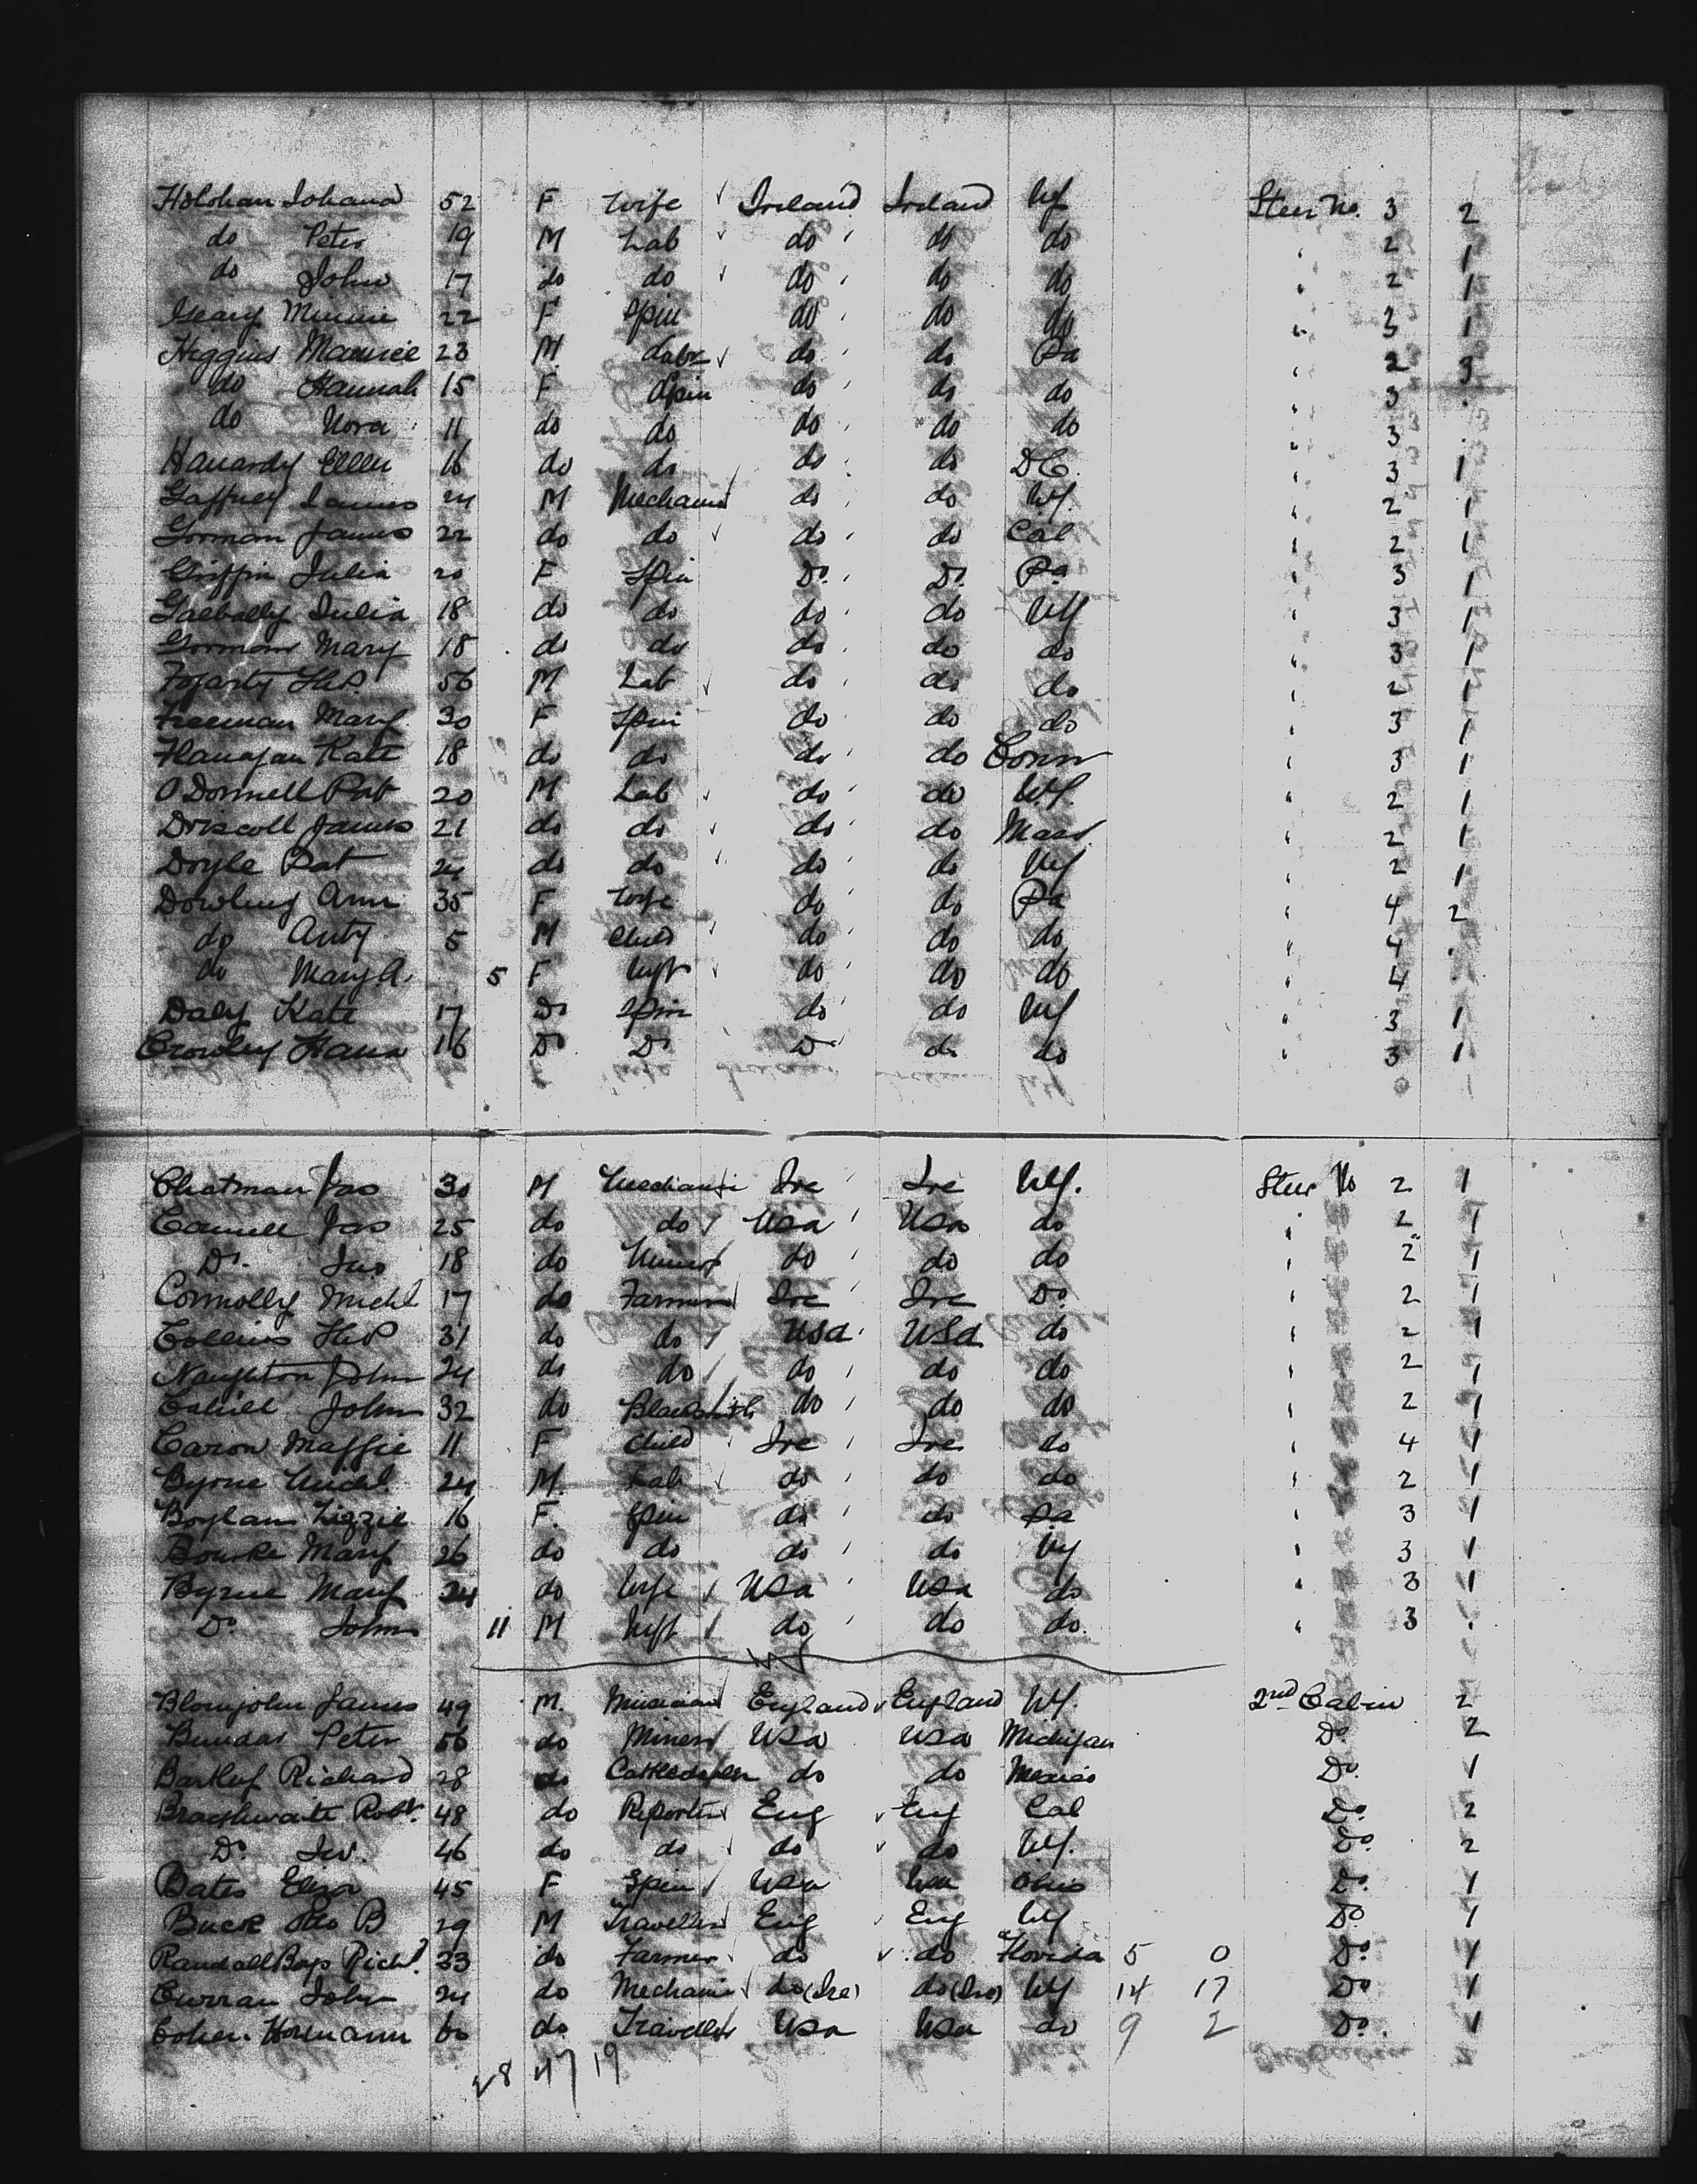 Holohan Johana 52 F Wife Ireland Ireland NY Steer No. 3 2
do Peter 19 M Lab do do do " 2 1
do John 17 do do do do do " 2 1
Geary Minnie 22 F Spin do do do " 3 1
Higgins Maurice 23 M Labr do do Pa " 2 3
do Hannah 15 F Spin do do do " 3 .
do Nora 11 do do do do do " 3 .
Ellen 16 do do do do DC. " 3 1
Gaffney James 24 M Mechanic do do NY. " 2 1
Gorman James 22 do do do do Cal " 2 1
Griffin Julia 20 F Spin Do. Do. Pa " 3 1
Galbally Julia 18 do do do do NY " 3 1
Gorman Mary 18 do do do do do " 3 1
Fogarty Thos. 56 M Lab do do do " 2 1
Freeman Mary 30 F Spin do do do " 3 1
Flanagan Kate 18 do do do do Conn " 3 1
O'Donnell Pat 20 M Lab do do NY. " 2 1
Driscoll James 21 do do do do Mass " 2 1
Doyle Pat 24 do do do do NY " 2 1
Dowling Ann 35 F Wife do do Pa " 4 2
do Anty 5 M Child do do do " 4 .
do Mary A. 5 F Inft do do do " 4
Daly Kate 17 Do Spin do do NY " 3 1
Crowley Hana 16 Do Do Do do do " 3 1
Chatman Jas 30 M Mechanic Ire Ire NY. Steer No 2 1
Jas 25 do do USA USA do " 2 1
Do. Jno 18 do do do do " 2 1
Connolly Michl 17 do Farmer Ire Ire Do " 2 1
Collins Thos 31 do do USA USA do " 2 1
Naughton John 24 do do do do do " 2 1
Cahill John 32 do Blacksmith do do do " 2 1
Caron Maggie 11 F Child Ire Ire do " 4 1
Byrne Michl. 24 M. Lab do do do " 2 1
Boylan Lizzie 16 F. Spin do do Pa " 3 1
Bourke Mary 26 do do do do NY " 3 1
Byrne Mary 24 do Wife USA USA do " 3 1
Do John 11 M Inft do do do. " 3 .
Blomjohn James 49 M. Musician England England NY. 2nd Cabin 2
Bundar Peter 56 do Miner USA USA Michigan Do 2
Barkley Richard 28 do do do Mexico Do. 1
Braithwaite Robt. 48 do Reporter Eng Eng Cal Do. 2
Do 46 do do do do NY. Do. 2
Bates Eliza 45 F Spin USA USA Ohio Do. 1
Buck B 29 M Traveller Eng Eng NY Do 1
Randall Bays Richd. 33 do Farmer do do Florida 5 0 Do 1
Curran John 24 do Mechanic do (Ire) do (Ire) NY 14 17 Do 1
Cohen Hermann 60 do Traveller USA USA do 9 2 Do. 1
28 47 19